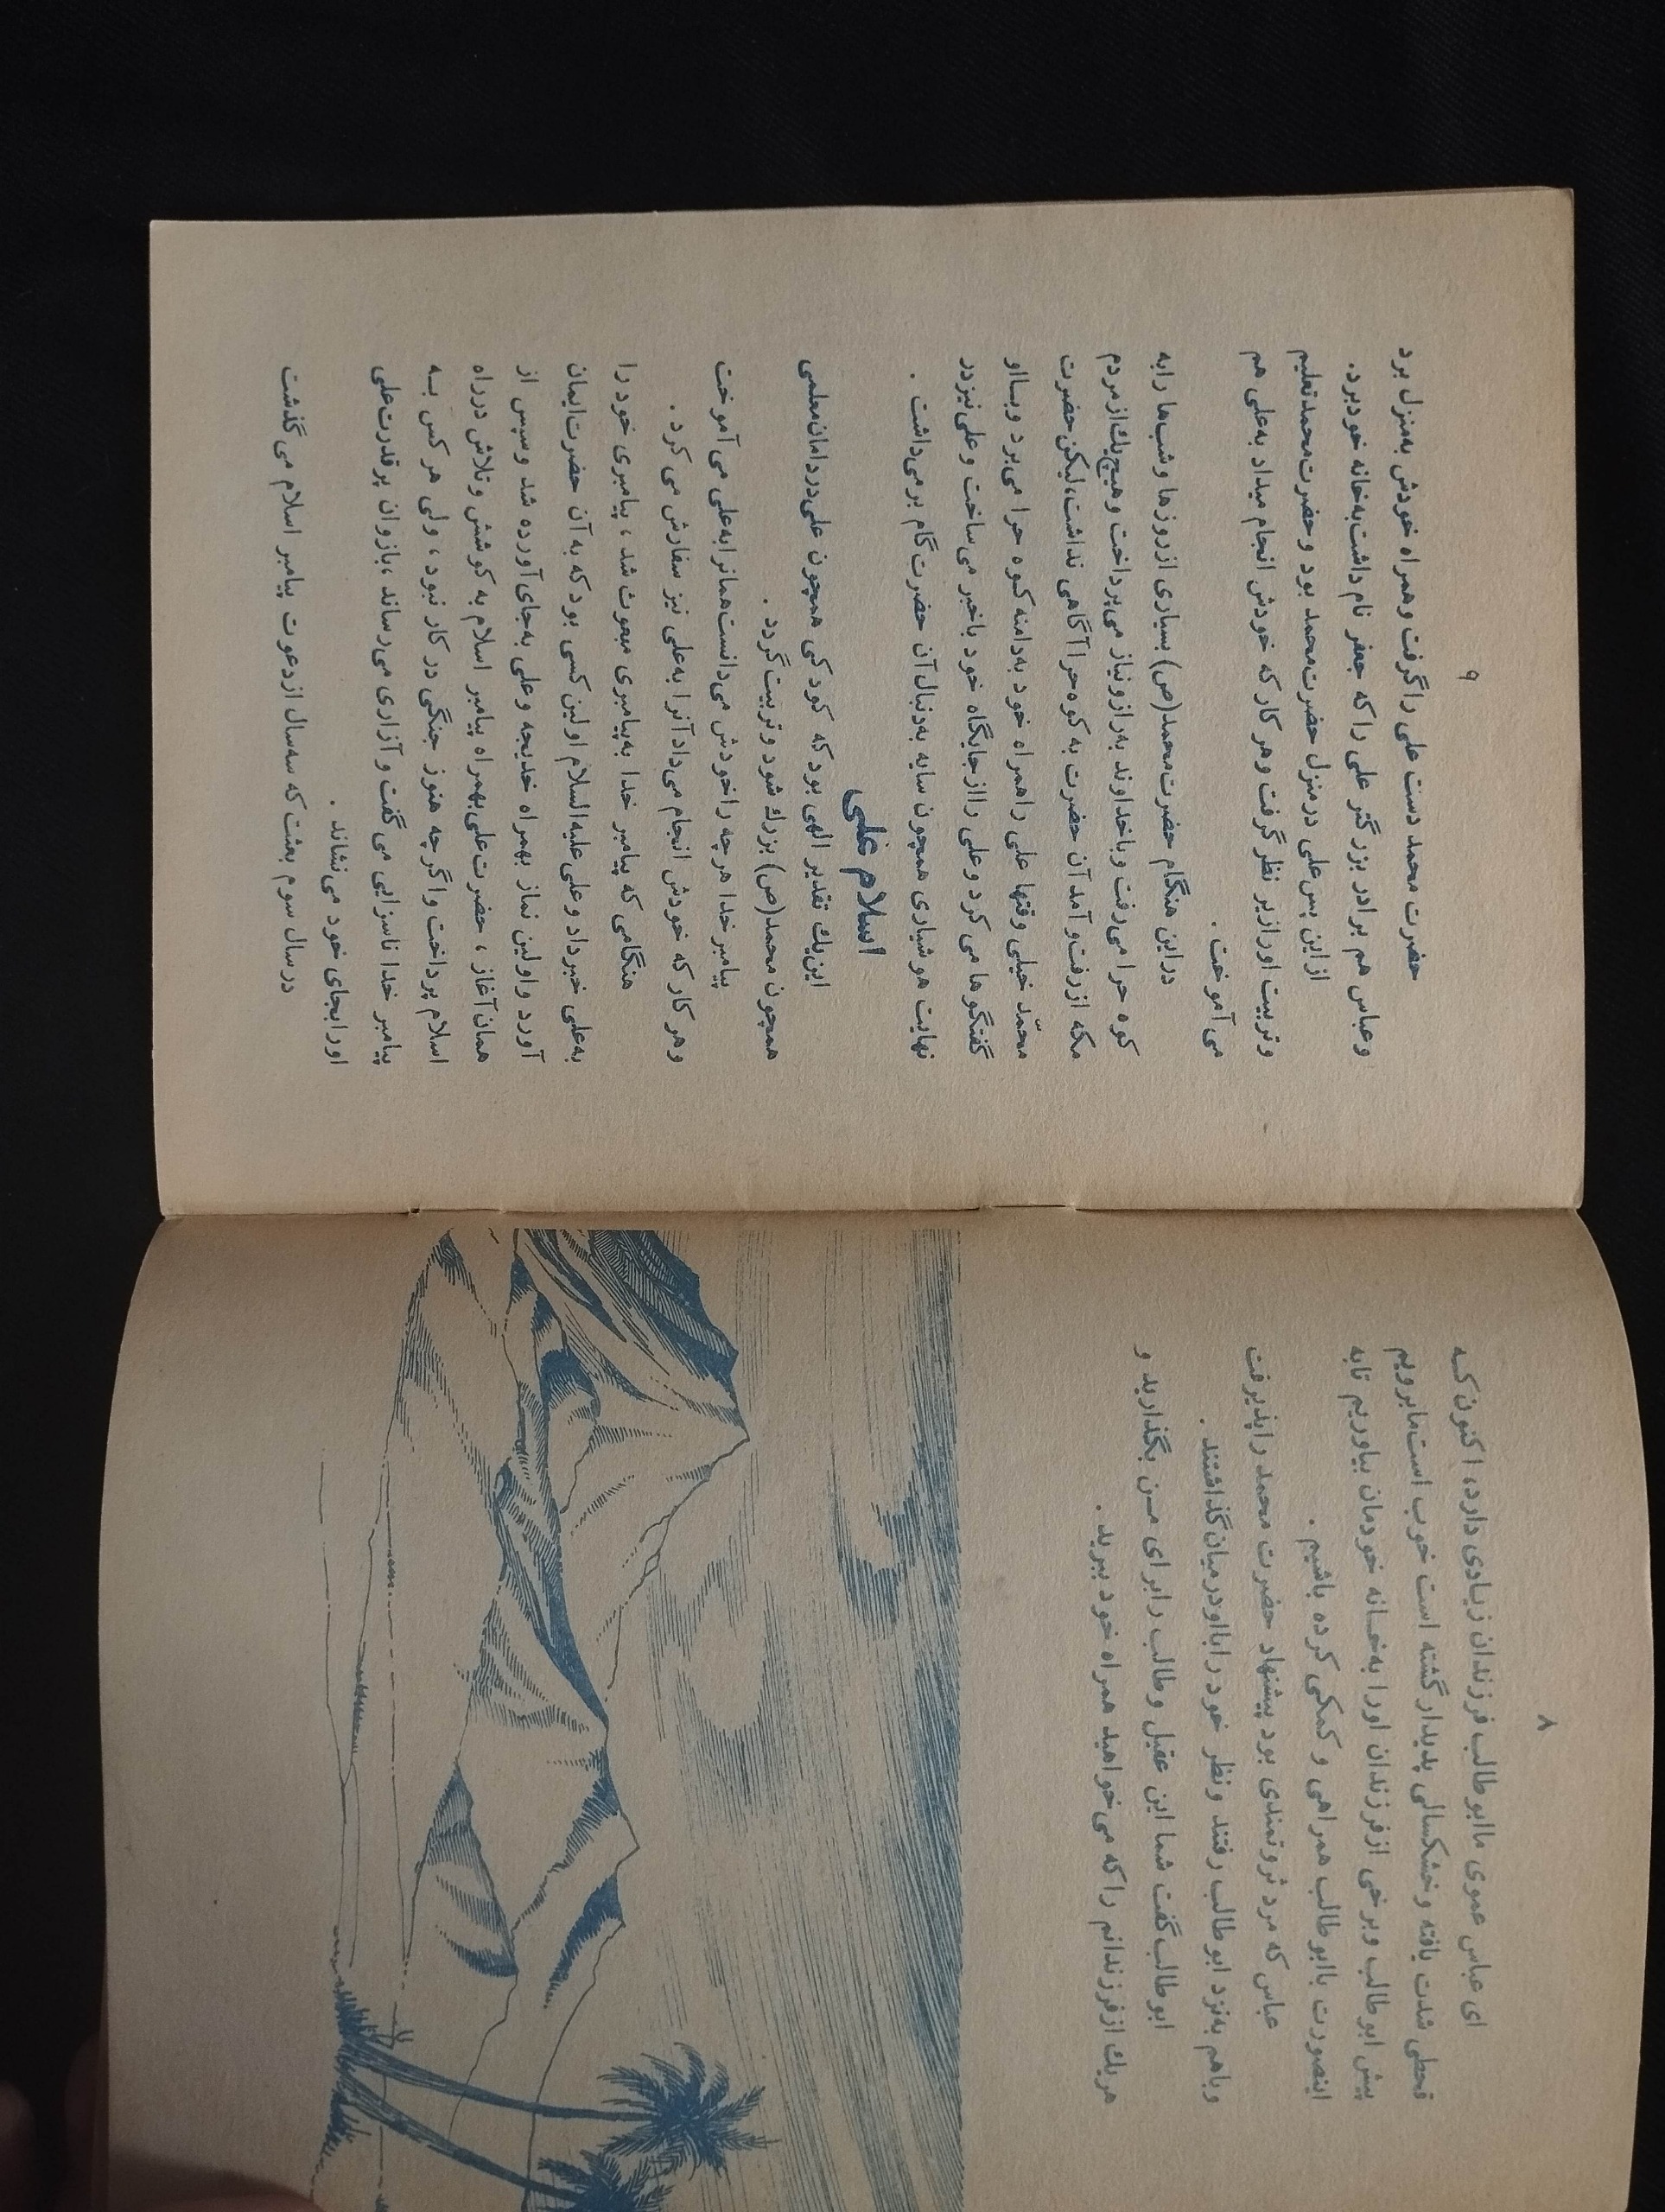 ۸
ای عباس عموی ما ابوطالب فرزندان زیادی دارد، اکنون که
قحطی شدت یافته و خشکسالی پدیدار گشته است خوب است ما برویم
پیش ابوطالب و برخی از فرزندان او را به‌خانه خودمان بیاوریم تا به
اینصورت با ابوطالب همراهی و کمکی کرده باشیم .
عباس که مرد ثروتمندی بود پیشنهاد حضرت محمد را پذیرفت
و باهم به‌نزد ابوطالب رفتند و نظر خود را با او درمیان گذاشتند .
ابوطالب گفت شما این عقیل و طالب را برای من بگذارید و
هریك از فرزندانم را که می‌خواهید همراه خود ببرید .
۹
حضرت محمد دست علی را گرفت و همراه خودش به‌منزل برد
و عباس هم برادر بزرگتر علی را که جعفر نام داشت به‌خانه خود برد.
از این پس علی درمنزل حضرت‌محمد بود و حضرت‌محمد تعلیم
و تربیت او را زیر نظر گرفت و هر کار که خودش انجام میداد به‌علی هم
می‌آموخت .
در این هنگام حضرت‌محمد(ص) بسیاری از روزها و شب‌ها را به
کوه حرا می‌رفت و باخداوند به‌راز و نیاز می‌پرداخت و هیچ‌یك از مردم
مکه از رفت و آمد آن حضرت به کوه حرا آگاهی نداشت، لیکن حضرت
محمّد خیلی وقتها علی را همراه خود به‌دامنه کوه حرا می‌برد و با او
گفتگوها می‌کرد و علی را از جایگاه خود باخبر می‌ساخت و علی نیز در
نهایت هوشیاری همچون سایه به‌دنبال آن حضرت گام برمی‌داشت .
اسلام علی
این یك تقدیر الهی بود که کودکی همچون علی در دامان معلمی
همچون محمد(ص) بزرك شود و تربیت گردد .
پیامبر خدا هرچه را خودش می‌دانست همانرا به‌علی می‌آموخت
و هر کار که خودش انجام می‌داد آنرا به‌علی نیز سفارش می‌کرد .
هنگامی که پیامبر خدا به‌پیامبری مبعوث شد ، پیامبری خود را
به‌علی خبر داد و علی علیه‌السلام اولین کسی بود که به آن حضرت ایمان
آورد و اولین نماز بهمراه خدیجه و علی به‌جای آورده شد و سپس از
همان آغاز ، حضرت‌علی بهمراه پیامبر اسلام به کوشش و تلاش در راه
اسلام پرداخت و اگرچه هنوز جنگی در کار نبود ، ولی هرکس به
پیامبر خدا ناسزایی می‌گفت و آزاری می‌رساند ، بازوان پرقدرت علی
او را بجای خود می‌نشاند .
در سال سوم بعثت که سه‌سال از دعوت پیامبر اسلام می‌گذشت